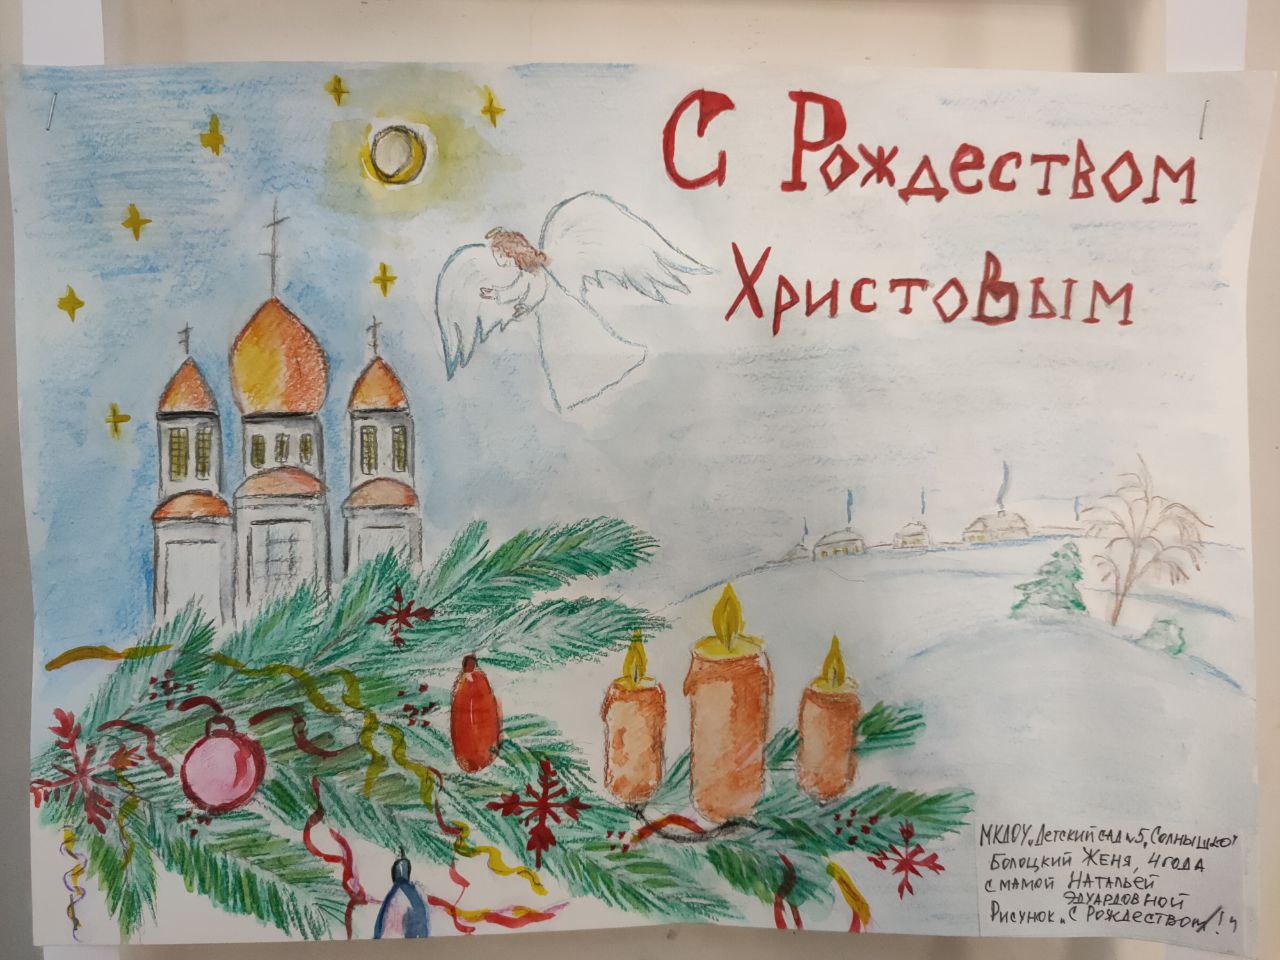 С Рождеством
Христовым
МКДОУ „Детский сад №5 „Солнышко"
Болоцкий Женя, 4 года
с мамой Натальей
Эдуардовной
Рисунок „С Рождеством!"